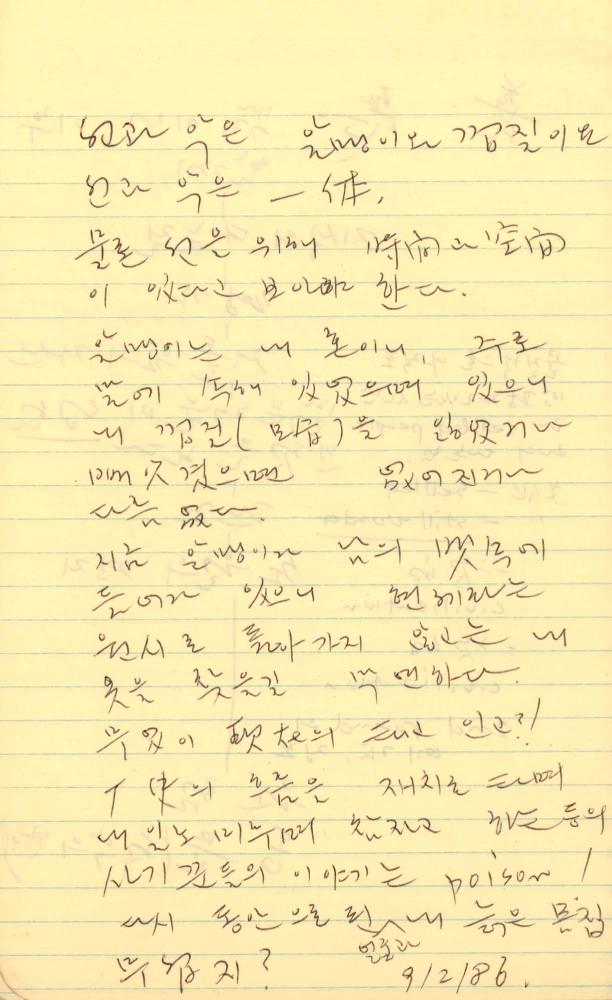 선과 악은 알맹이와 껍질이요
선과 악은 一体.
물론 선을 위해 時間과 空間
이 있다고 보아야 한다.
알맹이는 내 혼이니, 주로
말에 속해 있었으며 있으니
내 껍질( 모습)을 잃었거나
빼앗겼으면 없어지거나
다름 없다.
지금 알맹이가 남의 뱃속에
들어가 있으니 현재라는
원시로 돌아가지 않고는 내
옷을 찾을길 막연하다.
무엇이 現在의 태고 인고?!
下史의 흐름은 재치로 따며
내일도 미루며 참자고 하는 등의
사기꾼들의 이야기는 poison!
다시 동안으로 된 내 늙은 몸집
얼굴과
무엇인지?
9/2/86.